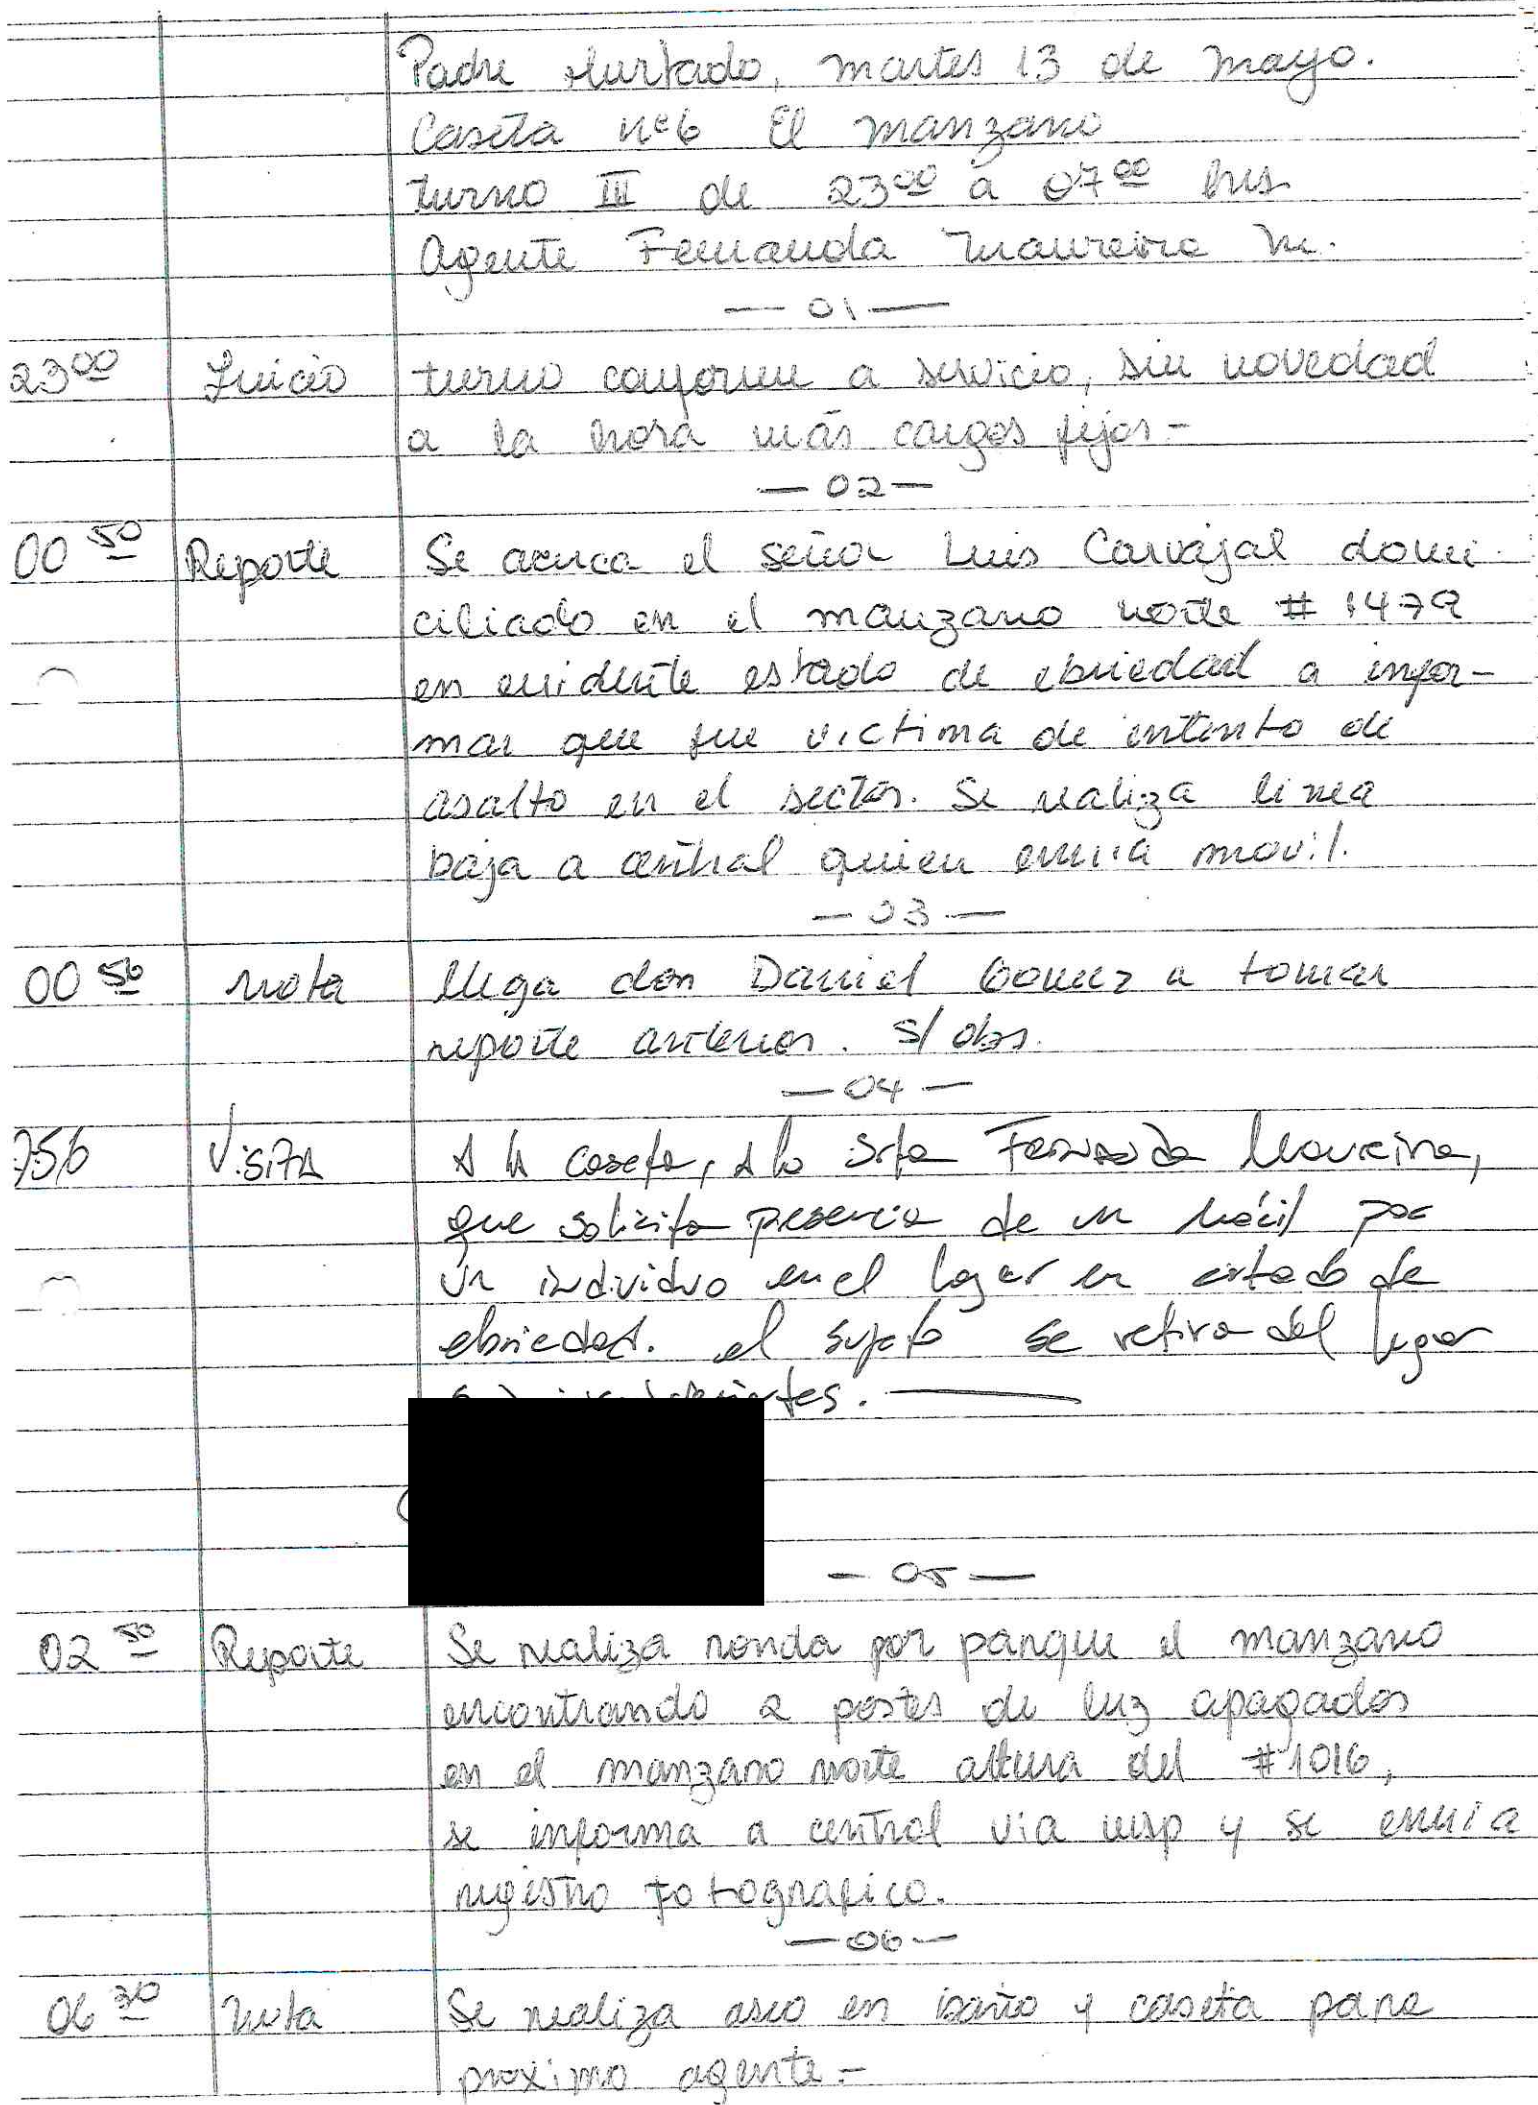 Padre Hurtado, martes 13 de mayo.
Caseta nº6 El manzano
turno III de 2300 a 0700 hrs
Agente Fernanda Maureira M.
— 01 —
2300 Inicio turno conforme a servicio, sin novedad
a la hora más cargos fijos -
— 02 —
00 50 Reporte Se acerca el señor Luis Carvajal domi
ciliado en el manzano norte # 1479
en evidente estado de ebriedad a infor-
mar que fue victima de intento de
asalto en el sector. Se realiza linea
baja a central quien envia movil.
— 03 —
00 56 nota llega don Daniel Gomez a tomar
reporte anterior. s/ obs.
— 04 —
056 Visita A la caseta, A la Srta Fernanda Maureira,
que solicita presencia de un móvil por
un individuo en el lugar en estado de
ebriedad. el sujeto se retira del lugar
— 05 —
02 50 Reporte Se realiza ronda por parque el manzano
encontrando 2 postes de luz apagados
en el manzano norte altura del #1016,
se informa a central via wsp y se envia
registro fotografico.
— 06 —
06 30 nota Se realiza aseo en baño y caseta para
proximo agente -